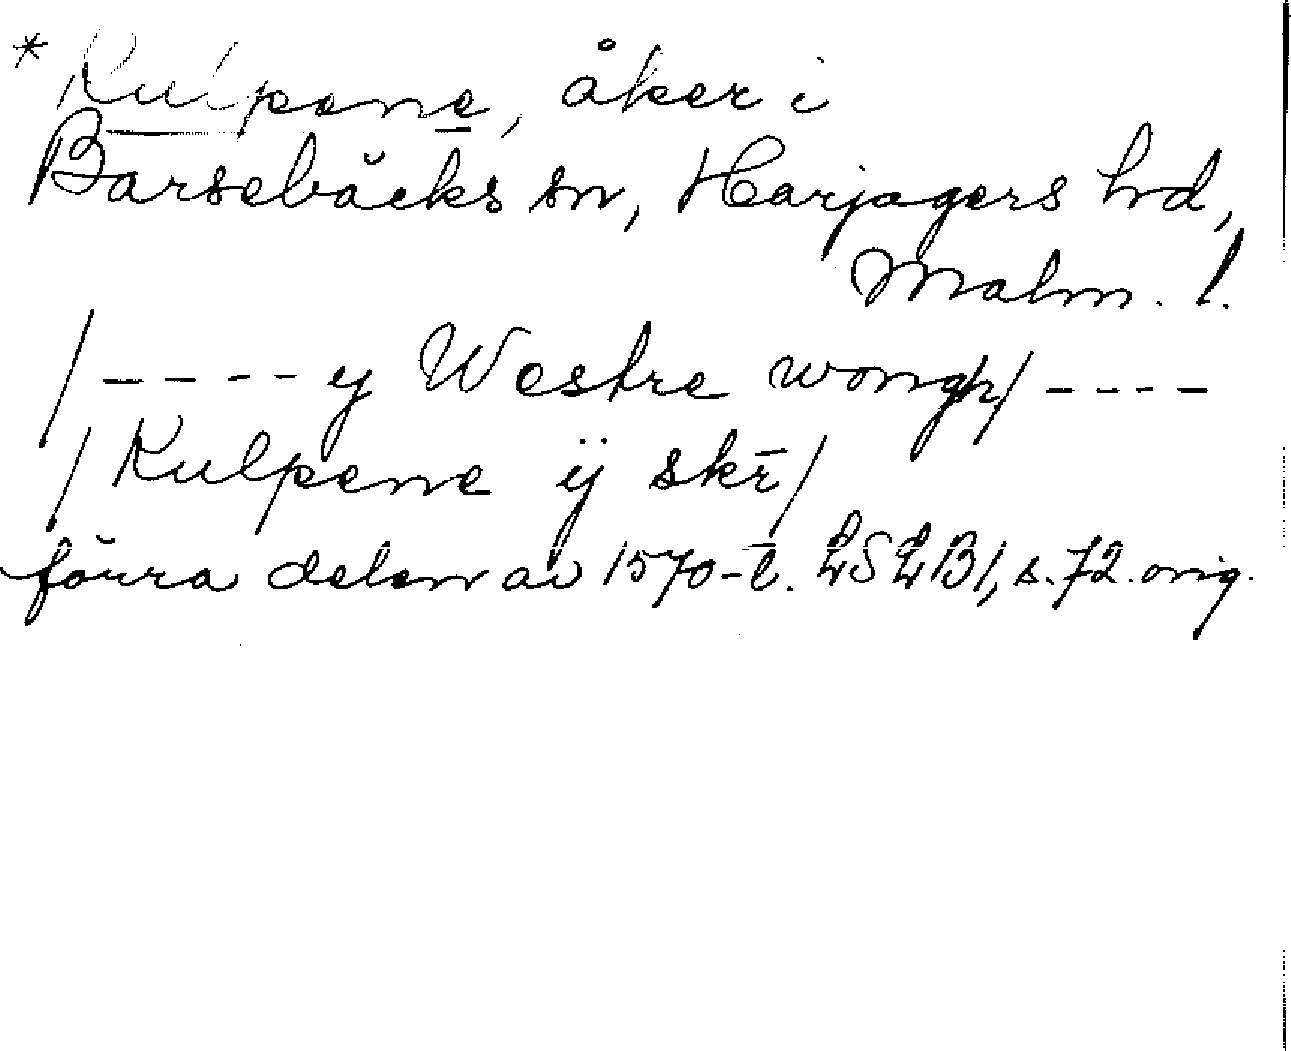 * Kulpene, åker i
Barsebäcks sn, Harjagers hd,
Malm. l.
/---- y Westre wongh/ ----
/ Kulpene ÿ skr̄/
förra delen av 1570-t. LSLB1, s. 72. orig.